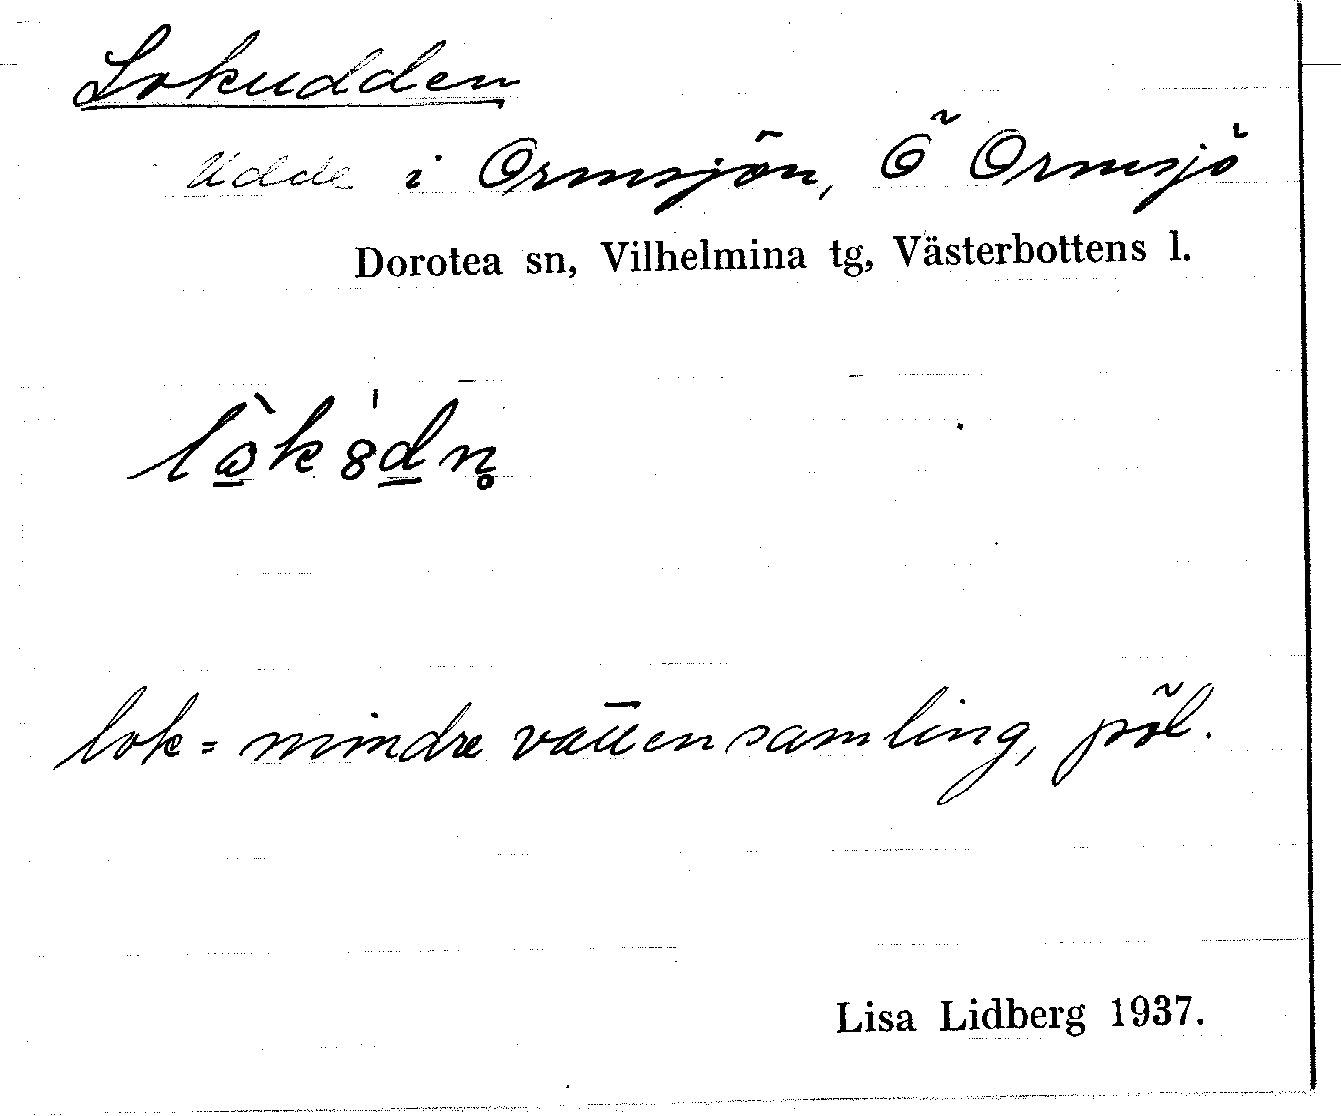 Lokudden
Udde i Ormsjön, Ö Ormsjö
Dorotea sn, Vilhelmina tg, Västerbottens l.
lok = mindre vattensamling, pöl.
Lisa Lidberg 1937.